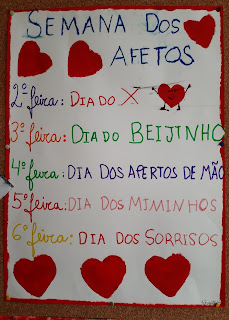 SEMANA DOS
AFETOS
2ª feira: DIA DO X
3ª feira: DIA DO BEIJINHO
4ª feira: DIA DOS APERTOS DE MÃO
5ª feira: DIA DOS MIMINHOS
6ª feira: DIA DOS SORRISOS